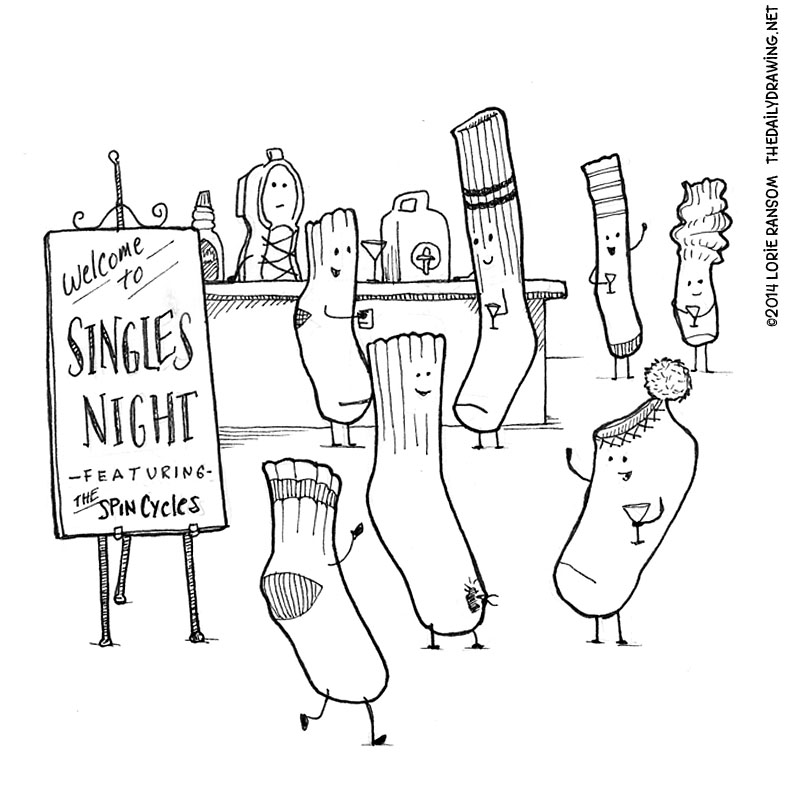 Welcome
to
SINGLES
NIGHT
-FEATURING-
THE SPIN CYCLES
©2014 LORIE RANSOM THEDAILYDRAWING.NET